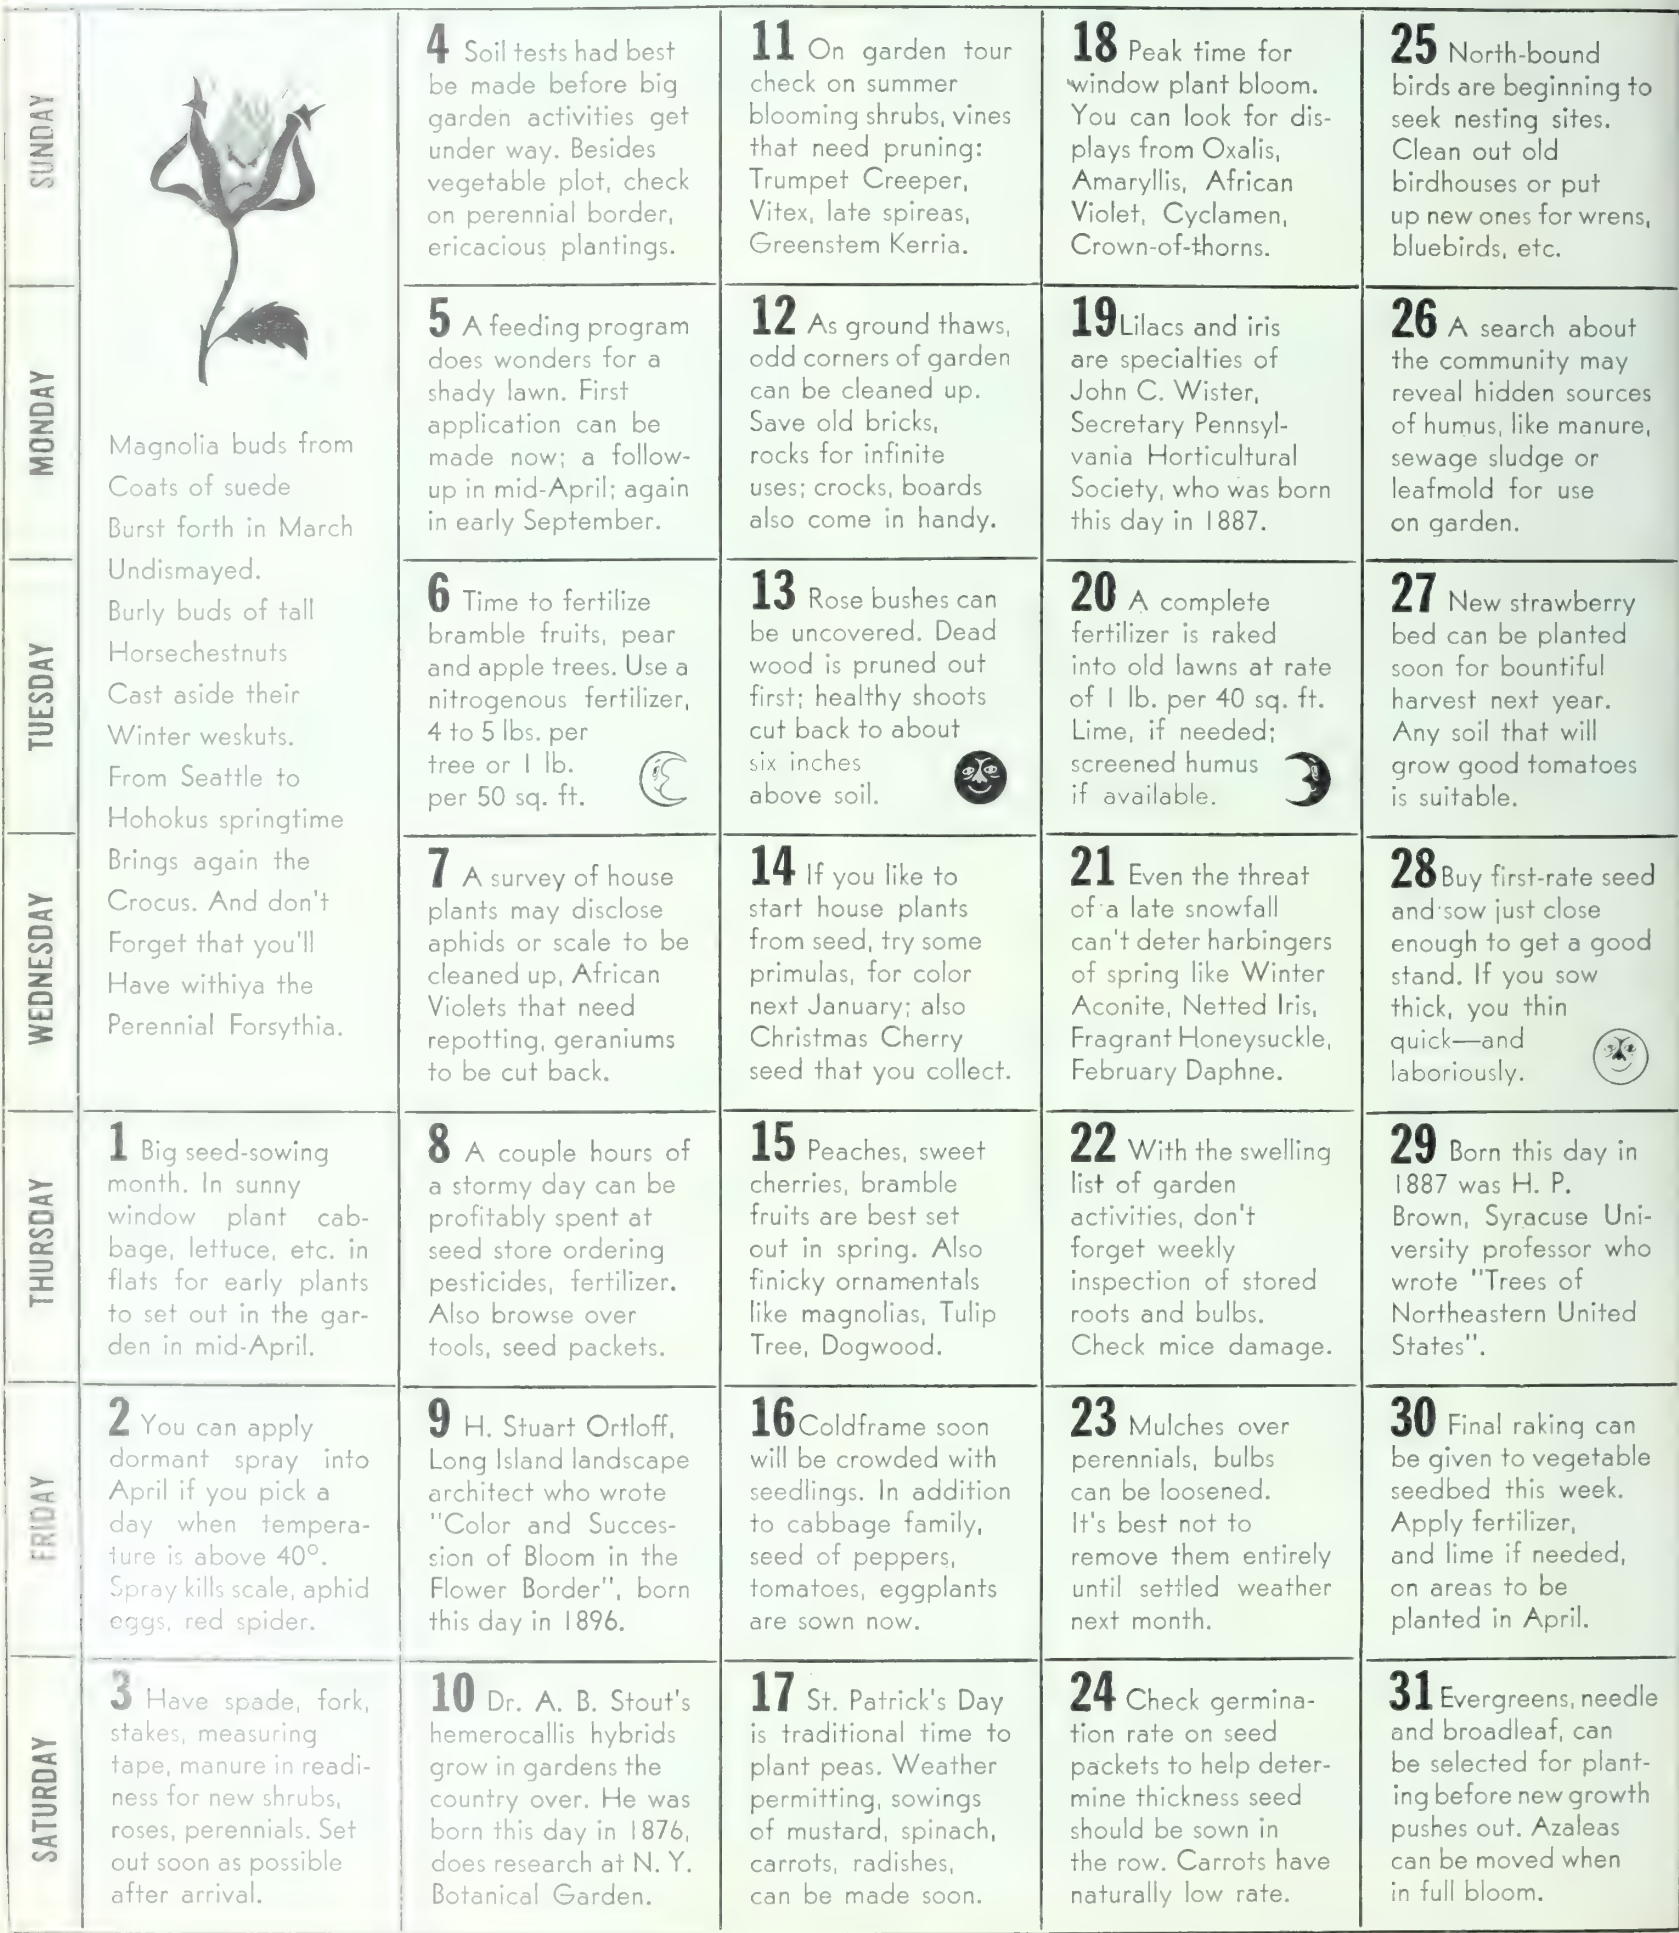 SUNDAY
MONDAY
TUESDAY
WEDNESDAY
THURSDAY
FRIDAY
SATURDAY
Magnolia buds from
Coats of suede
Burst forth in March
Undismayed.
Burly buds of tall
Horsechestnuts
Cast aside their
Winter weskuts.
From Seattle to
Hohokus springtime
Brings again the
Crocus. And don't
Forget that you'll
Have withiya the
Perennial Forsythia.
1 Big seed-sowing
month. In sunny
window plant cab-
bage, lettuce, etc. in
flats for early plants
to set out in the gar-
den in mid-April.
2 You can apply
dormant spray into
April if you pick a
day when tempera-
ture is above 40°.
Spray kills scale, aphid
eggs, red spider.
3 Have spade, fork,
stakes, measuring
tape, manure in readi-
ness for new shrubs,
roses, perennials. Set
out soon as possible
after arrival.
4 Soil tests had best
be made before big
garden activities get
under way. Besides
vegetable plot, check
on perennial border,
ericacious plantings.
5 A feeding program
does wonders for a
shady lawn. First
application can be
made now; a follow-
up in mid-April; again
in early September.
6 Time to fertilize
bramble fruits, pear
and apple trees. Use a
nitrogenous fertilizer,
4 to 5 lbs. per
tree or 1 lb.
per 50 sq. ft.
7 A survey of house
plants may disclose
aphids or scale to be
cleaned up, African
Violets that need
repotting, geraniums
to be cut back.
8 A couple hours of
a stormy day can be
profitably spent at
seed store ordering
pesticides, fertilizer.
Also browse over
tools, seed packets.
9 H. Stuart Ortloff,
Long Island landscape
architect who wrote
"Color and Succes-
sion of Bloom in the
Flower Border", born
this day in 1896.
10 Dr. A. B. Stout's
hemerocallis hybrids
grow in gardens the
country over. He was
born this day in 1876,
does research at N. Y.
Botanical Garden.
11 On garden tour
check on summer
blooming shrubs, vines
that need pruning:
Trumpet Creeper,
Vitex, late spireas,
Greenstem Kerria.
12 As ground thaws,
odd corners of garden
can be cleaned up.
Save old bricks,
rocks for infinite
uses; crocks, boards
also come in handy.
13 Rose bushes can
be uncovered. Dead
wood is pruned out
first; healthy shoots
cut back to about
six inches
above soil.
14 If you like to
start house plants
from seed, try some
primulas, for color
next January; also
Christmas Cherry
seed that you collect.
15 Peaches, sweet
cherries, bramble
fruits are best set
out in spring. Also
finicky ornamentals
like magnolias, Tulip
Tree, Dogwood.
16 Coldframe soon
will be crowded with
seedlings. In addition
to cabbage family,
seed of peppers,
tomatoes, eggplants
are sown now.
17 St. Patrick's Day
is traditional time to
plant peas. Weather
permitting, sowings
of mustard, spinach,
carrots, radishes,
can be made soon.
18 Peak time for
window plant bloom.
You can look for dis-
plays from Oxalis,
Amaryllis, African
Violet, Cyclamen,
Crown-of-thorns.
19 Lilacs and iris
are specialties of
John C. Wister,
Secretary Pennsyl-
vania Horticultural
Society, who was born
this day in 1887.
20 A complete
fertilizer is raked
into old lawns at rate
of 1 lb. per 40 sq. ft.
Lime, if needed;
screened humus
if available.
21 Even the threat
of a late snowfall
can't deter harbingers
of spring like Winter
Aconite, Netted Iris,
Fragrant Honeysuckle,
February Daphne.
22 With the swelling
list of garden
activities, don't
forget weekly
inspection of stored
roots and bulbs.
Check mice damage.
23 Mulches over
perennials, bulbs
can be loosened.
It's best not to
remove them entirely
until settled weather
next month.
24 Check germina-
tion rate on seed
packets to help deter-
mine thickness seed
should be sown in
the row. Carrots have
naturally low rate.
25 North-bound
birds are beginning to
seek nesting sites.
Clean out old
birdhouses or put
up new ones for wrens,
bluebirds, etc.
26 A search about
the community may
reveal hidden sources
of humus, like manure,
sewage sludge or
leafmold for use
on garden.
27 New strawberry
bed can be planted
soon for bountiful
harvest next year.
Any soil that will
grow good tomatoes
is suitable.
28 Buy first-rate seed
and sow just close
enough to get a good
stand. If you sow
thick, you thin
quick—and
laboriously.
29 Born this day in
1887 was H. P.
Brown, Syracuse Uni-
versity professor who
wrote "Trees of
Northeastern United
States".
30 Final raking can
be given to vegetable
seedbed this week.
Apply fertilizer,
and lime if needed,
on areas to be
planted in April.
31 Evergreens, needle
and broadleaf, can
be selected for plant-
ing before new growth
pushes out. Azaleas
can be moved when
in full bloom.